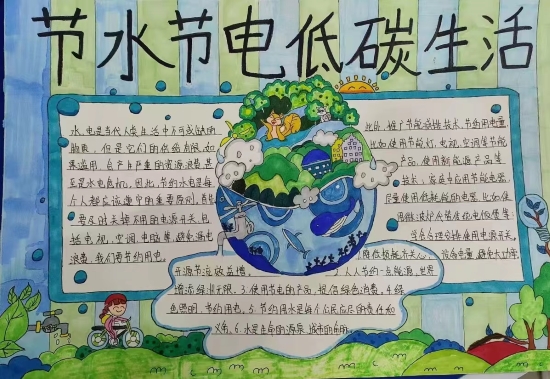 节水节电低碳生活
水、电是当代人类生活中不可或缺的
能源,但是它们的供给有限,如
果滥用,会产生严重的资源浪费,甚
至是水电危机。因此,节约水电是每
个人都应该遵守的重要原则。首先
要及时关掉不用的电源开关,包
括电视,空调,电脑等,避免漏电
浪费。我们要节约用电。
此外,推广节能科技技术,节约用电量
比如,使用节能灯,电视,空调等节能
产品,使用新能源产品等
技术,家庭中应用节能电器,
尽量使用低耗能的电器,比如使
用
学会合理安排使用电源开关。
开源节流效益增
人人节约一点能源,世界
增添绿色无限。3.使用节电的产品,提倡绿色消费。4.绿
色照明,节约用电。5.节约用水是每个公民应尽的责任和
义务。6.水是生命的源泉、城市的